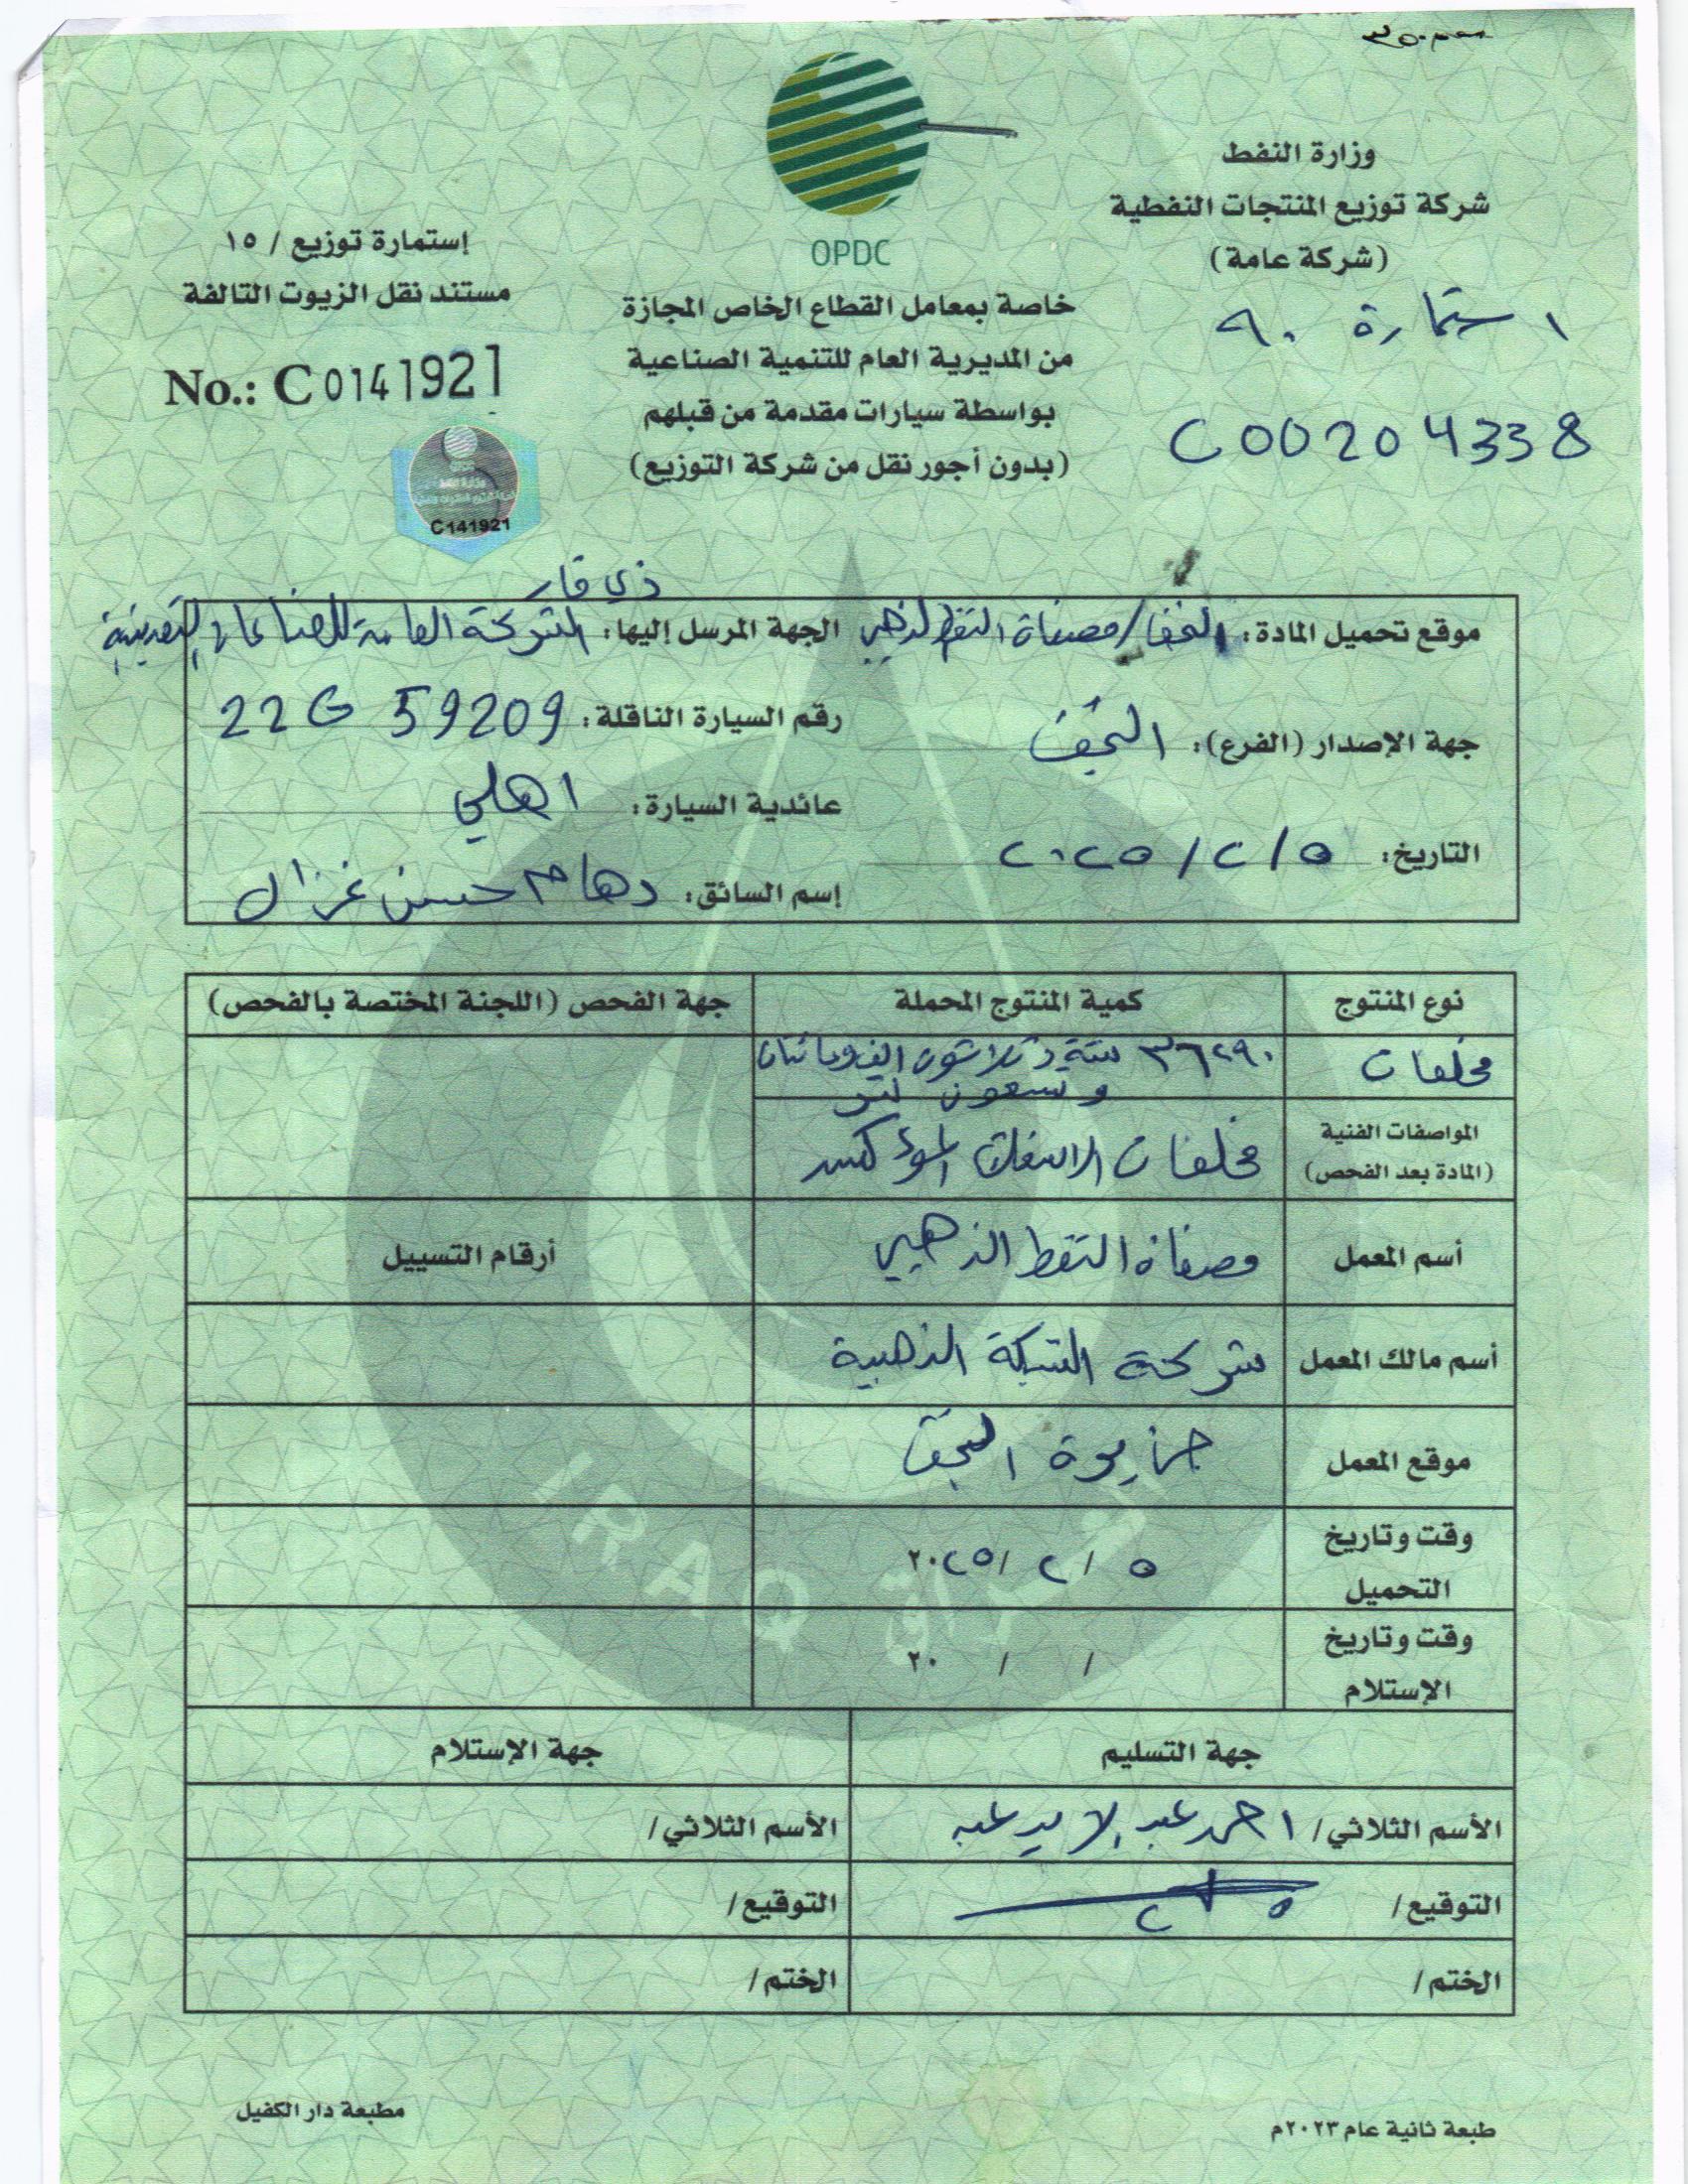 وزارة النفط
شركة توزيع المنتجات النفطية
(شركة عامة)
استمارة ٩٠
C00204338
OPDC
خاصة بمعامل القطاع الخاص المجازة
من المديرية العام للتنمية الصناعية
بواسطة سيارات مقدمة من قبلهم
(بدون أجور نقل من شركة التوزيع)
إستمارة توزيع / ١٥
مستند نقل الزيوت التالفة
No.: C 0141921
C141921
ذي قار
موقع تحميل المادة: النجف / مصفاة النفط الذهبي
الجهة المرسل إليها: الشركة العامة للصناعات التعدينية
جهة الإصدار (الفرع): النجف
رقم السيارة الناقلة: 22G 59209
عائدية السيارة: اهلي
التاريخ: ٥ / ٢ / ٢٠٢٥
إسم السائق: دهام حسن غزال
نوع المنتوج كمية المنتوج المحملة جهة الفحص (اللجنة المختصة بالفحص)
مخلفات ٣٦٢٩٠ ستة وثلاثون الف ومائتان
وتسعون لتر
المواصفات الفنية
(المادة بعد الفحص)
مخلفات الاسفلت المؤكسد
أسم المعمل مصفاة النفط الذهبي أرقام التسييل
أسم مالك المعمل شركة الشبكة الذهبية
موقع المعمل جزيرة النجف
وقت وتاريخ
التحميل
٥ / ٢ / ٢٠٢٥
وقت وتاريخ
الإستلام
/ / ٢٠
جهة التسليم جهة الإستلام
الأسم الثلاثي/ احمد عبد
الأسم الثلاثي/
التوقيع/ التوقيع/
الختم/ الختم/
IRAQ العراق
طبعة ثانية عام ٢٠٢٣م
مطبعة دار الكفيل